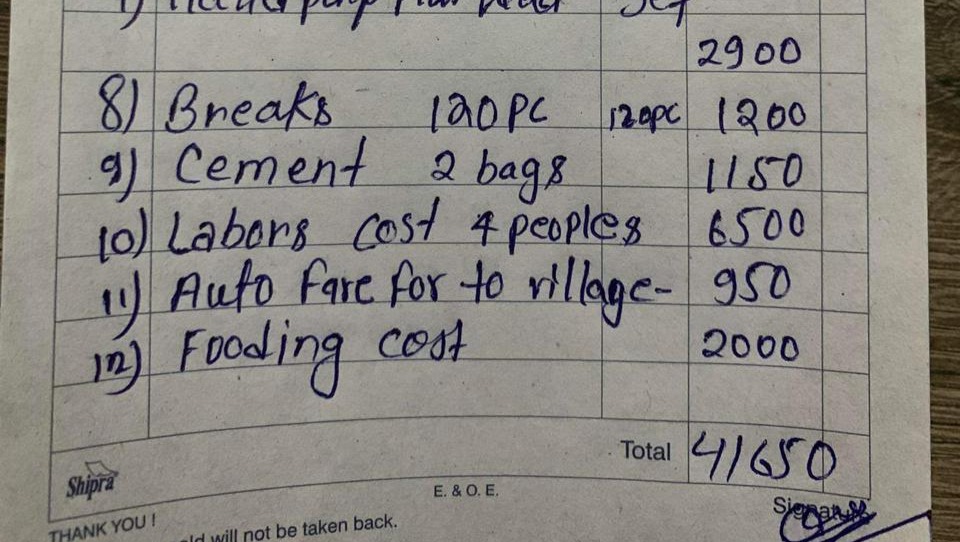 2900
8) Breaks 120PC 120PC 1200
9) Cement 2 bags 1150
10) Labors cost 4 peoples 6500
11) Auto fare for to village- 950
12) Fooding cost 2000
Total 41650
Shipra
E. & O. E.
THANK YOU !
will not be taken back.